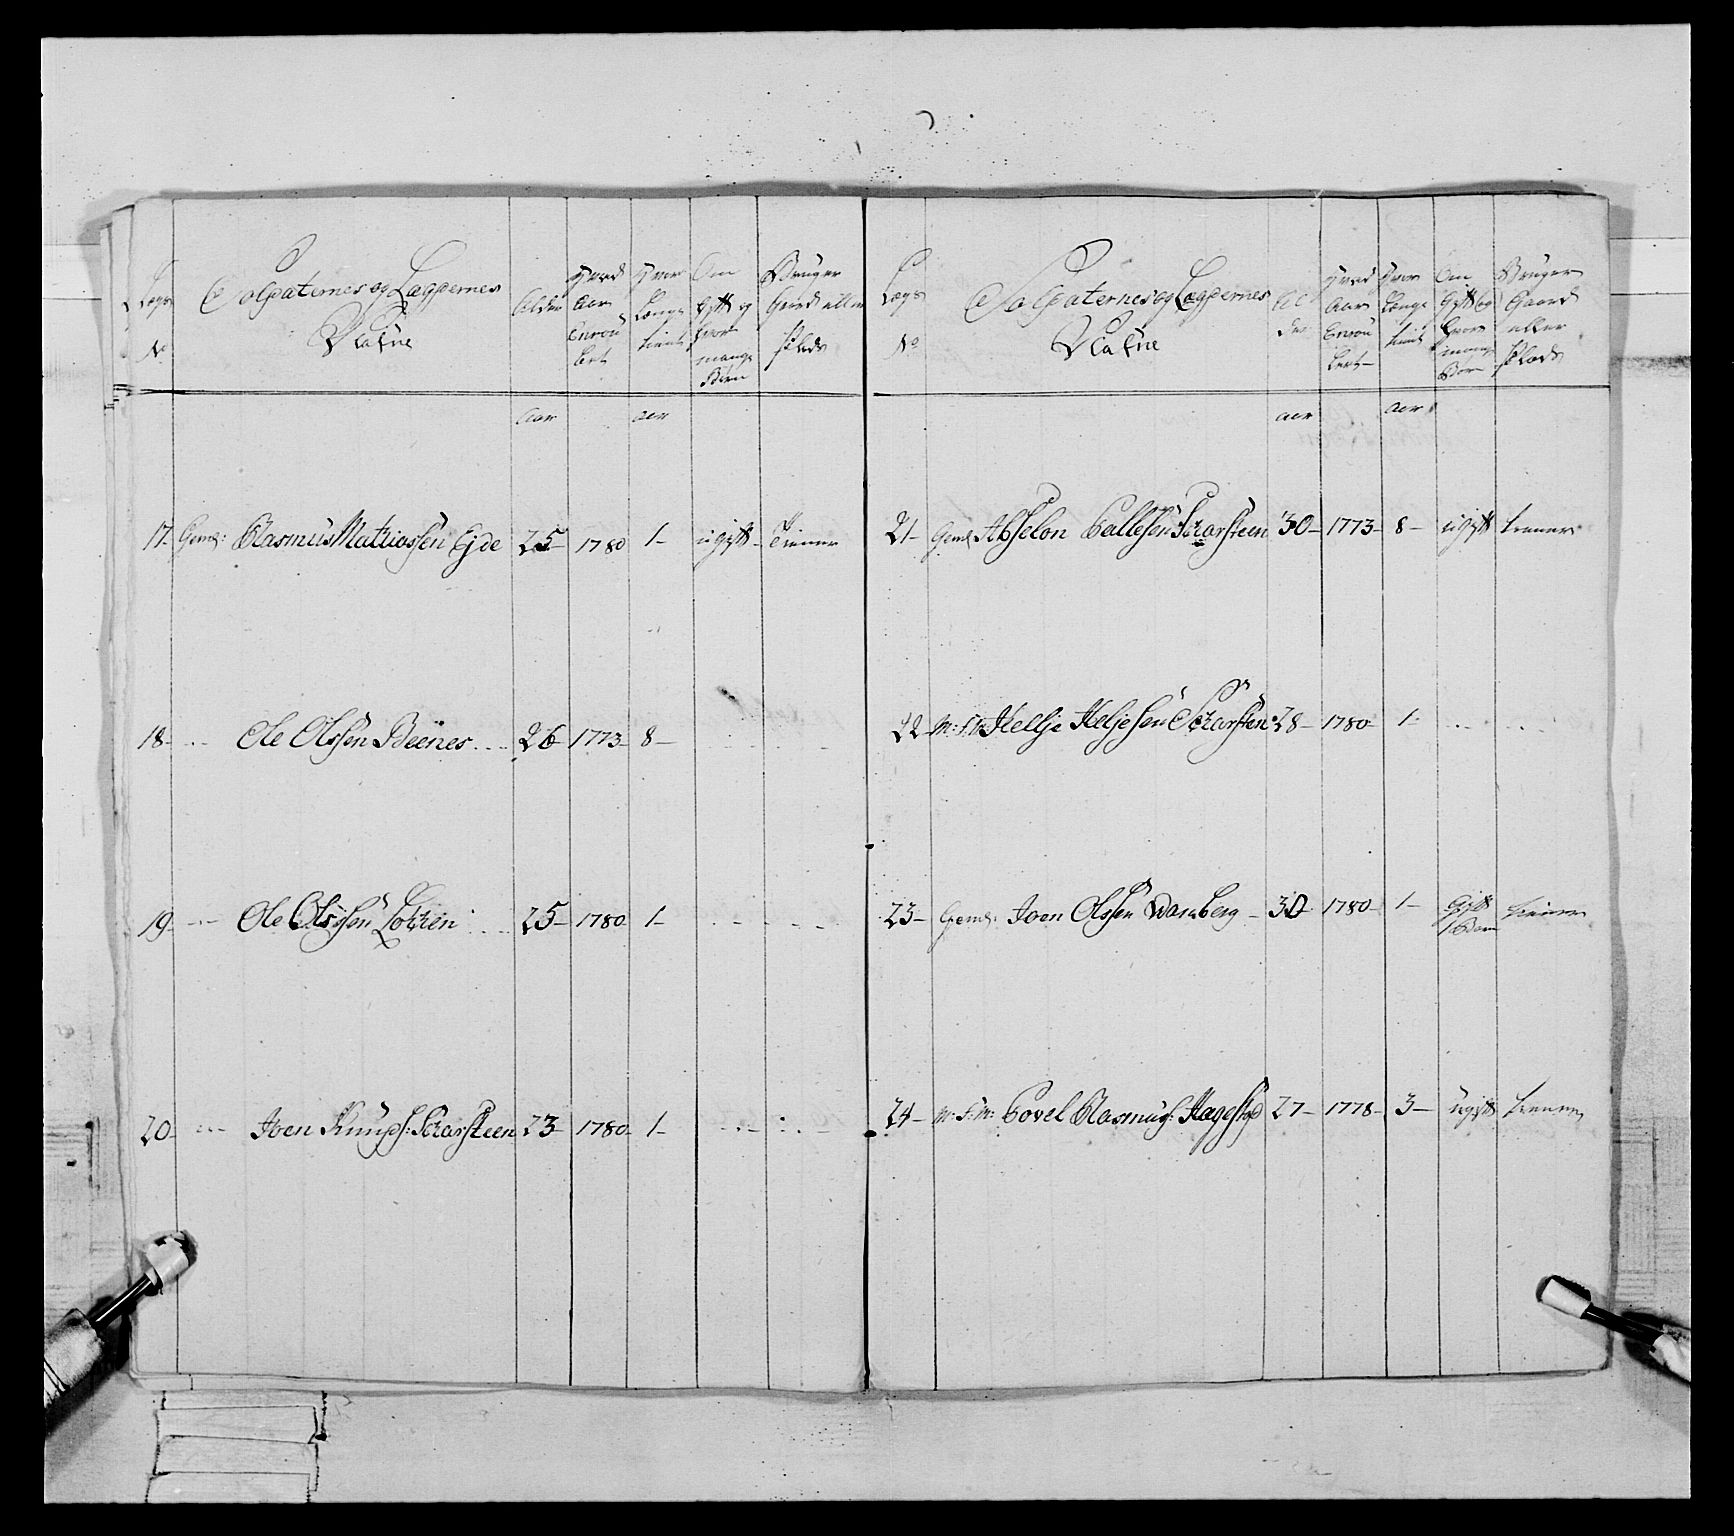 Lægs No
Soldaternes og Lægdernes Nafne
Alder
Hvad Aar Enroulert
Hvor Længe tient
Om Gift og hvor mange Børn
Bruger Gaard eller Plads
aar aar
17- Gem: Rasmus Matiassen Ejde 25- 1780 1- ugift- Tienner
18- - - - Ole Olssen Beenes 26- 1773- 8-
19- - - - Ole Olssen 25- 1780- 1-
20- - - - Joen Knuds: Scharsteen 23- 1780- 1-
Lægs No
Soldaternes og Lægdernes Nafne
Alder
Hvad Aar Enroulert-
Hvor Længe tient
Om Gift og hvor mange Børn
Bruger Gaard eller Plads
aar aar
21- Gem: Abselon Pallesen Scharsteen 30- 1773- 8- ugift tienner
22- Helje Heljesen Scharsten 28- 1780- 1-
23- Gem: Joen Olssen Wamberg- 30- 1780- 1- Gift 1 Barn tienner
24- Povel Rasmus: 27- 1778- 3- ugift tienner